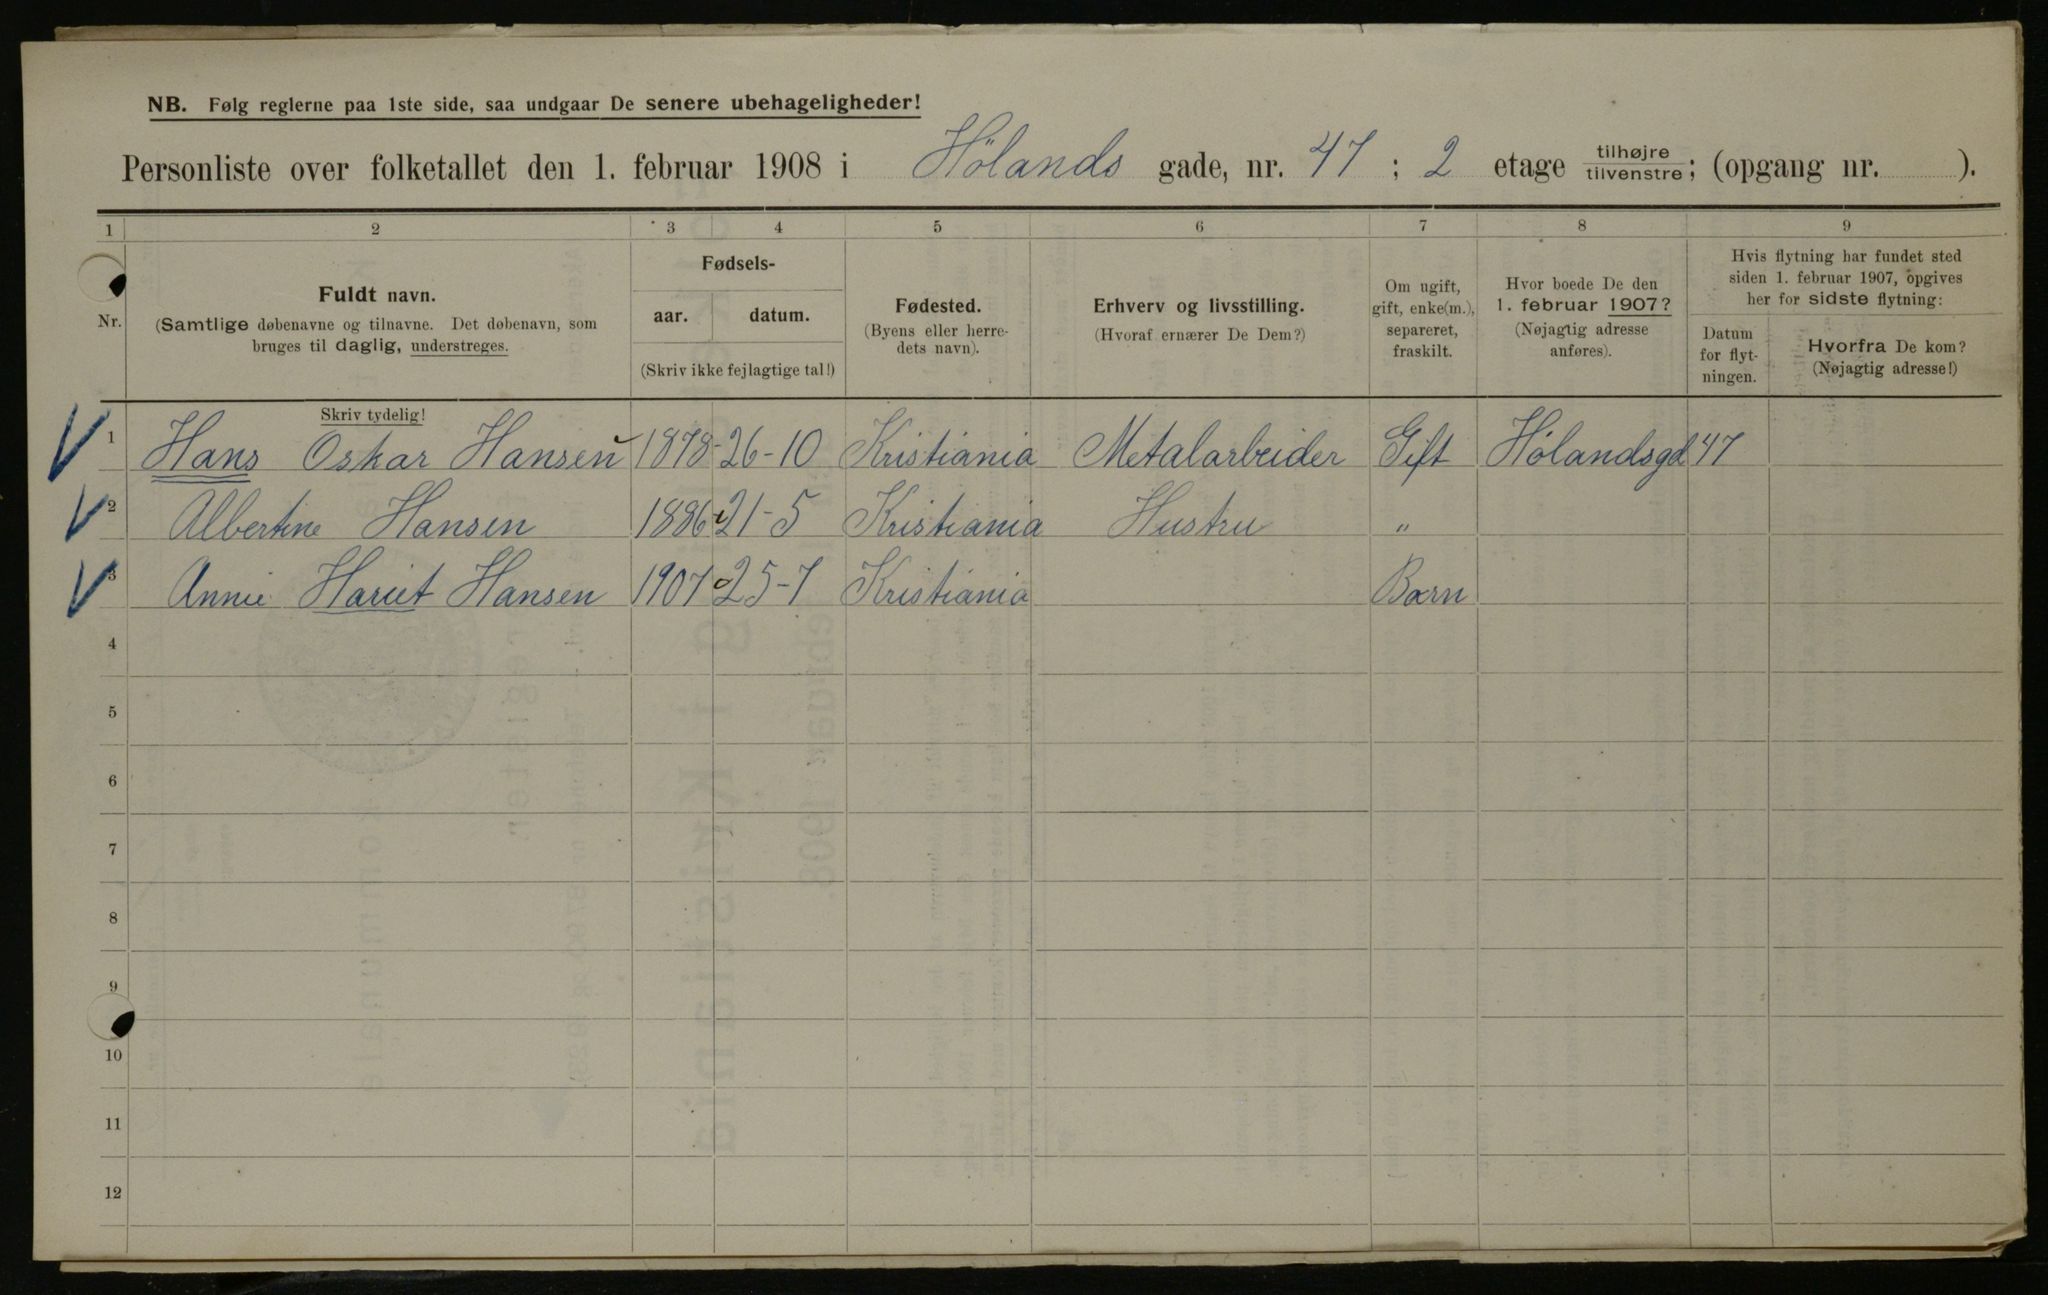 NB. Følg reglerne paa 1ste side, saa undgaar De senere ubehageligheder!
Personliste over folketallet den 1. februar 1908 i Hölands gade, nr. 47 ; 2 etage tilhøjre tilvenstre; (opgang nr. ).
1 2 3 4 5 6 7 8 9
Nr.
Fuldt navn.
(Samtlige døbenavne og tilnavne. Det døbenavn, som
bruges til daglig, understreges.
Skriv tydelig!
Fødsels-
aar. datum.
(Skriv ikke fejlagtige tal!)
Fødested.
(Byens eller herre-
dets navn).
Erhverv og livsstilling.
(Hvoraf ernærer De Dem?)
Om ugift,
gift, enke(m.),
separeret,
fraskilt.
Hvor boede De den
1. februar 1907?
(Nøjagtig adresse
anføres).
Hvis flytning har fundet sted
siden 1. februar 1907, opgives
her for sidste flytning:
Datum
for flyt-
ningen.
Hvorfra De kom?
(Nøjagtig adresse!)
1 Hans Oskar Hansen 1878 - 26-10 Kristiania Metalarbeider Gift Hölandsgd 47
2 Albertine Hansen 1886 21-5 Kristiania Hustru "
3 Annie Hariet Hansen 1907 25-7 Kristiania Barn
4
5
6
7
8
9
10
11
12